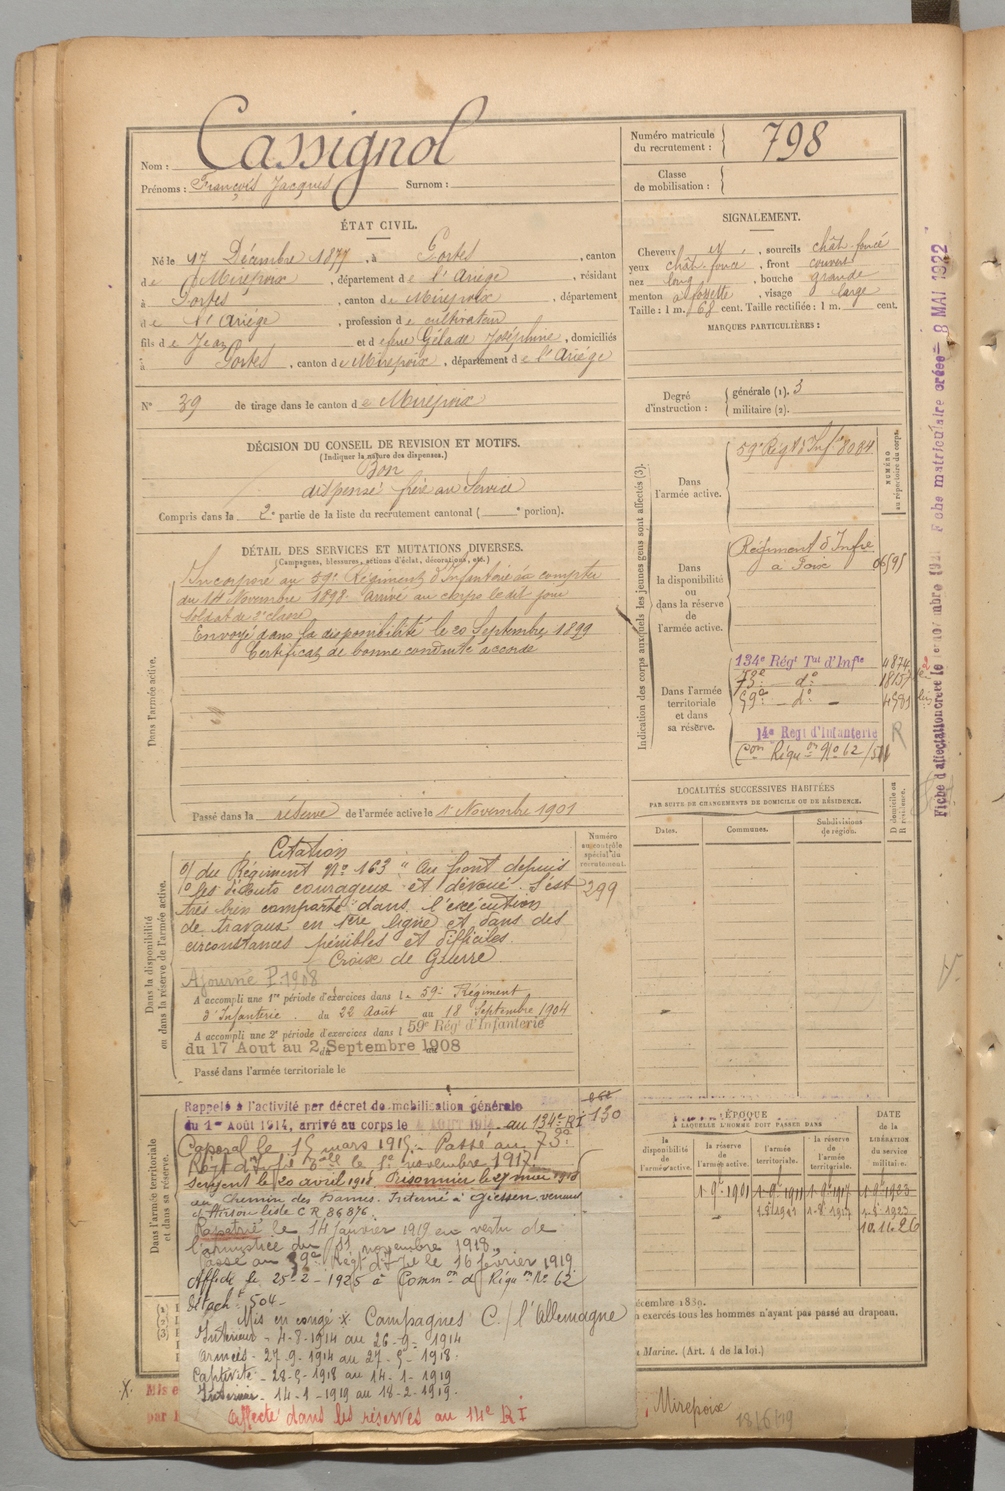 Nom : Cassignol
Prénoms : François Jacques Surnom :
Numéro matricule
du recrutement : 798
Classe
de mobilisation :
ÉTAT CIVIL.
Né le 17 Décembre 1877, à Portes, canton
de Mirepoix, département de l'Ariège, résidant
à Portes, canton de Mirepoix, département
de l'Ariège, profession de cultivateur
fils de Jean et de feue Gélade Joséphine, domiciliés
à Portes, canton de Mirepoix, département de l'Ariège
N° 39 de tirage dans le canton de Mirepoix
SIGNALEMENT.
Cheveux et, sourcils chât-foncé
yeux chât-foncé, front couvert
nez long, bouche grande
menton à fossette, visage large
Taille : 1 m. 68 cent. Taille rectifiée : 1 m. cent.
MARQUES PARTICULIÈRES :
Degré
d'instruction :
générale (1). 3
militaire (2).
DÉCISION DU CONSEIL DE REVISION ET MOTIFS.
(Indiquer la nature des dispenses.)
Bon
dispensé frère au Service
Compris dans la 2e partie de la liste du recrutement cantonal ( e portion).
DÉTAIL DES SERVICES ET MUTATIONS DIVERSES.
(Campagnes, blessures, actions d'éclat, décorations, etc.)
Dans l'armée active.
Incorporé au 59e Régiment d'Infanterie à compter
du 14 Novembre 1898. Arrivé au corps le dit jour
soldat de 2e classe
Envoyé dans la disponibilité le 20 Septembre 1899
Certificat de bonne conduite accordé
Passé dans la réserve de l'armée active le 1 Novembre 1901
Indication des corps auxquels les jeunes gens sont affectés (3).
NUMÉRO
au répertoire du corps.
Dans
l'armée active.
59e Régt d'Infie 8084
Dans
la disponibilité
ou
dans la réserve
de
l'armée active.
Régiment d'Infie
à Foix 06595
Dans l'armée
territoriale
et dans
sa réserve.
134e Régt Tal d'Infie 4874
73e — do —
59e — do — 4581
14e Régt d'Infanterie R
Con Réquon No 62
LOCALITÉS SUCCESSIVES HABITÉES
PAR SUITE DE CHANGEMENTS DE DOMICILE OU DE RÉSIDENCE.
Dates. Communes. Subdivisions
de région. D domicile ou
R résidence.
Dans la disponibilité
ou dans la réserve de l'armée active.
Numéro
au contrôle
spécial du
recrutement.
299
Citation
o/ du Régiment No 163 "Au front depuis
les débuts courageux et dévoué. S'est
très bien comporté dans l'exécution
de travaux en 1ère ligne et dans des
circonstances pénibles et difficiles.
Croix de Guerre
Ajourné P. 1908
A accompli une 1re période d'exercices dans le 59e Régiment
d'Infanterie. du 22 Août au 18 Septembre 1904
A accompli une 2e période d'exercices dans l 59e Régt d'Infanterie
du 17 Aout au 2 Septembre 1908
Passé dans l'armée territoriale le
Dans l'armée territoriale
et dans sa réserve.
Rappelé à l'activité par décret de mobilisation générale
du 1er Août 1914, arrivé au corps le 4 Août 1914. au 134e RI 130
Caporal le 15 mars 1915. Passé au 73e
Régt d'Infie le 1e novembre 1917
Sergent le 20 avril 1918. Prisonnier le 27 mai 1918
au Chemin des Dames. Interné à Giessen venant
d'Hirson liste C R 86876.
Rapatrié le 14 Janvier 1919 en vertu de
l'armistice du 11 novembre 1918.
Passé au 59e Régt d'Infie le 16 février 1919
Affecté le 25-2-1925 à Common de Réquon No 62
détacht 504-
Mis en congé X Campagnes C/ l'Allemagne
Intérieur - 4-8-1914 au 26-9-1914
Armées - 27-9-1914 au 27-5-1918.
Captivité - 28-5-1918 au 14-1-1919
Intérieur - 14-1-1919 au 18-2-1919.
Affecté dans les réserves au 14e R I
ÉPOQUE
À LAQUELLE L'HOMME DOIT PASSER DANS
DATE
de la
LIBÉRATION
du service
militaire.
la
disponibilité
de
l'armée active.
la réserve
de
l'armée active.
l'armée
territoriale.
la réserve
de
l'armée
territoriale.
1-9bre 1901 1-9bre 1911 1-9bre 1917 1-8bre 1923
10.11.26
écembre 1889.
n exercés tous les hommes n'ayant pas passé au drapeau.
a Marine. (Art. 4 de la loi.)
X. Mis e
par l
, Mirepoix
18/6/19
Fiche d'affectation créée le 1er novembre 1921 Fiche matriculaire créée = 8 MAI 1922